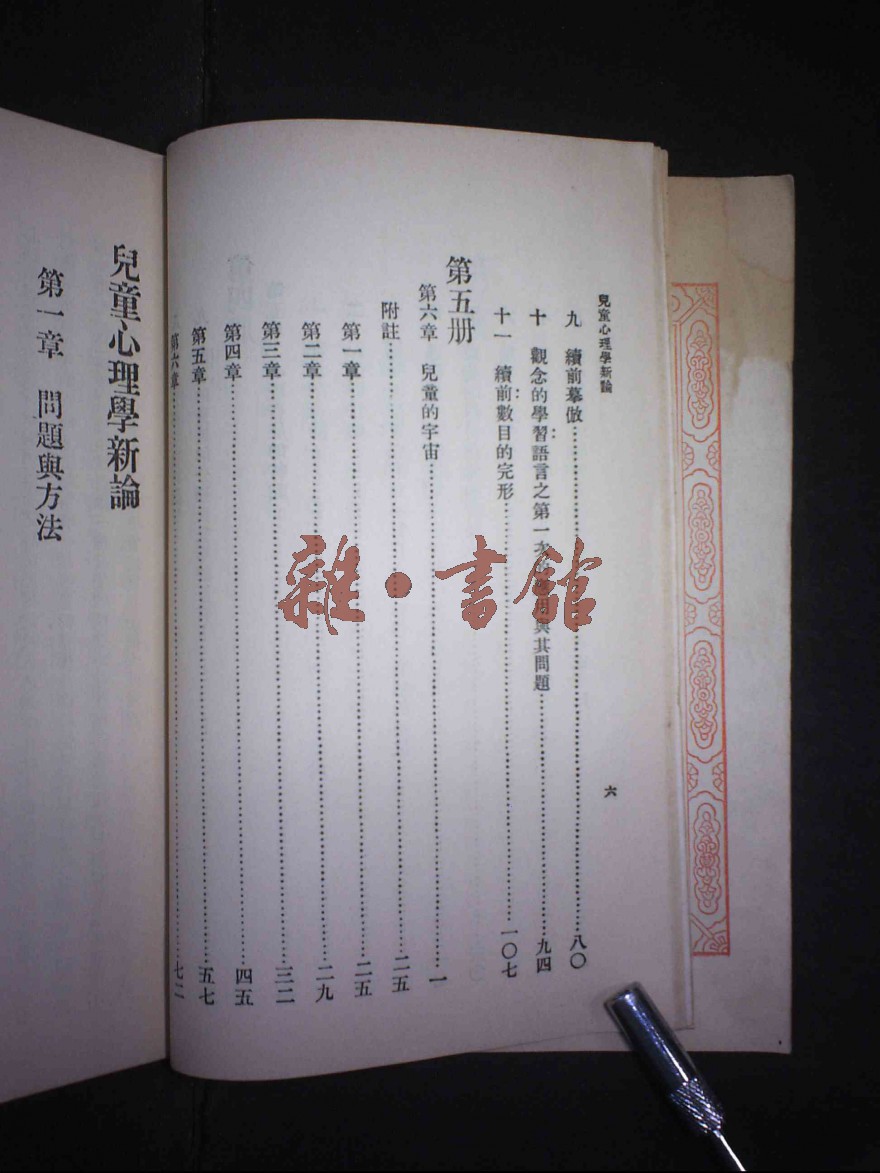 兒童心理學新論
六
九 續前摹倣 八〇
十 觀念的學習語言之第一次的應用與其問題 九四
十一 續前數目的完形 一〇七
第五册
第六章 兒童的宇宙 一
附註 二五
第一章 二五
第二章 二九
第三章 三二
第四章 四五
第五章 五七
第六章 七二
兒童心理學新論
第一章 問題與方法
雜·書館